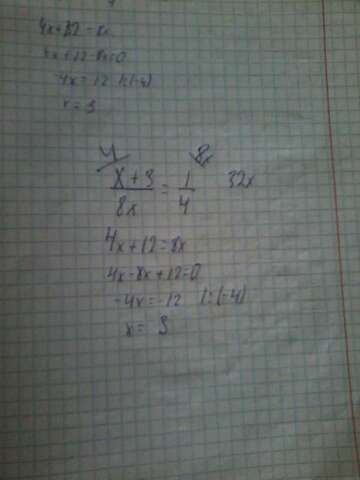 4x+12=8x
4x+12-8x=0
4x=12 |:(-4)
x=3
4 8x
x+3/8x = 1/4 32x
4x+12=8x
4x-8x+12=0
-4x=-12 |:(-4)
x= 3